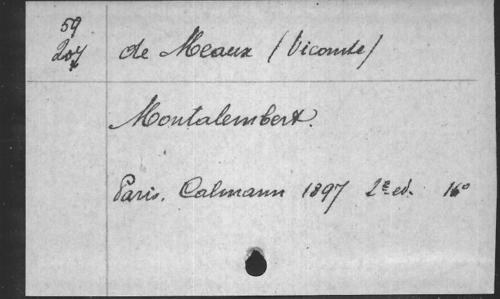 59
207
de Meaux (Vicomte)
Montalembert.
Paris. Calmann 1897 2e ed. 16º